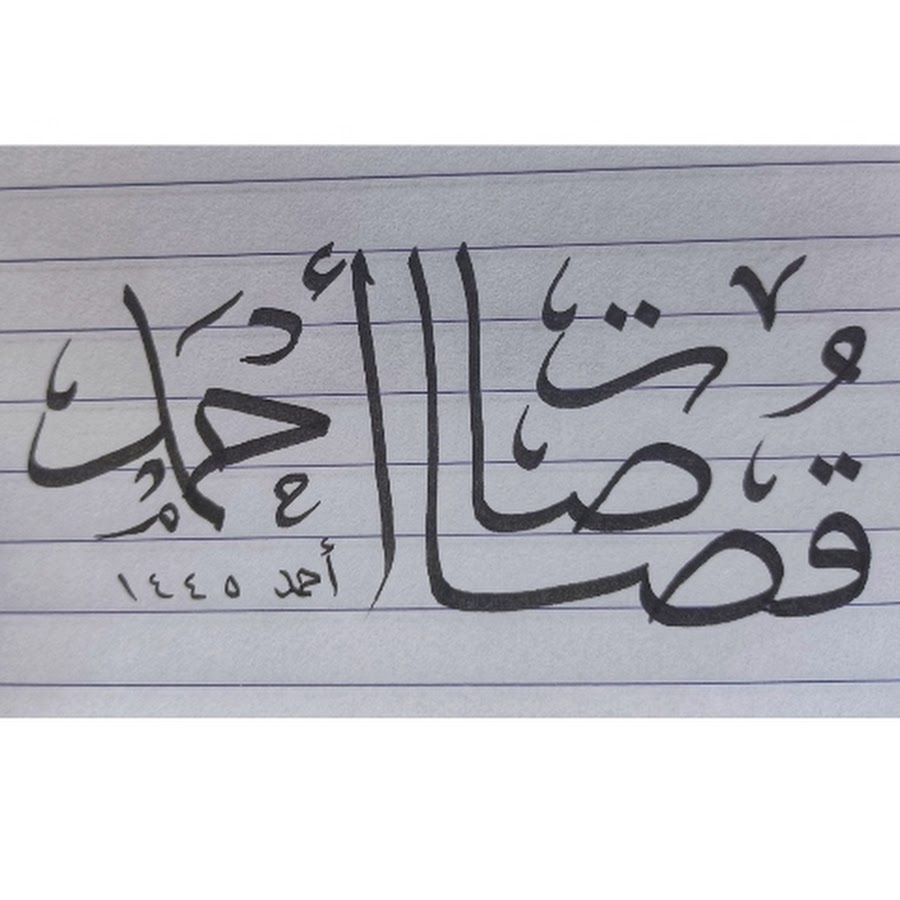 قُصَاصَات أحمد
أحمد ١٤٤٥